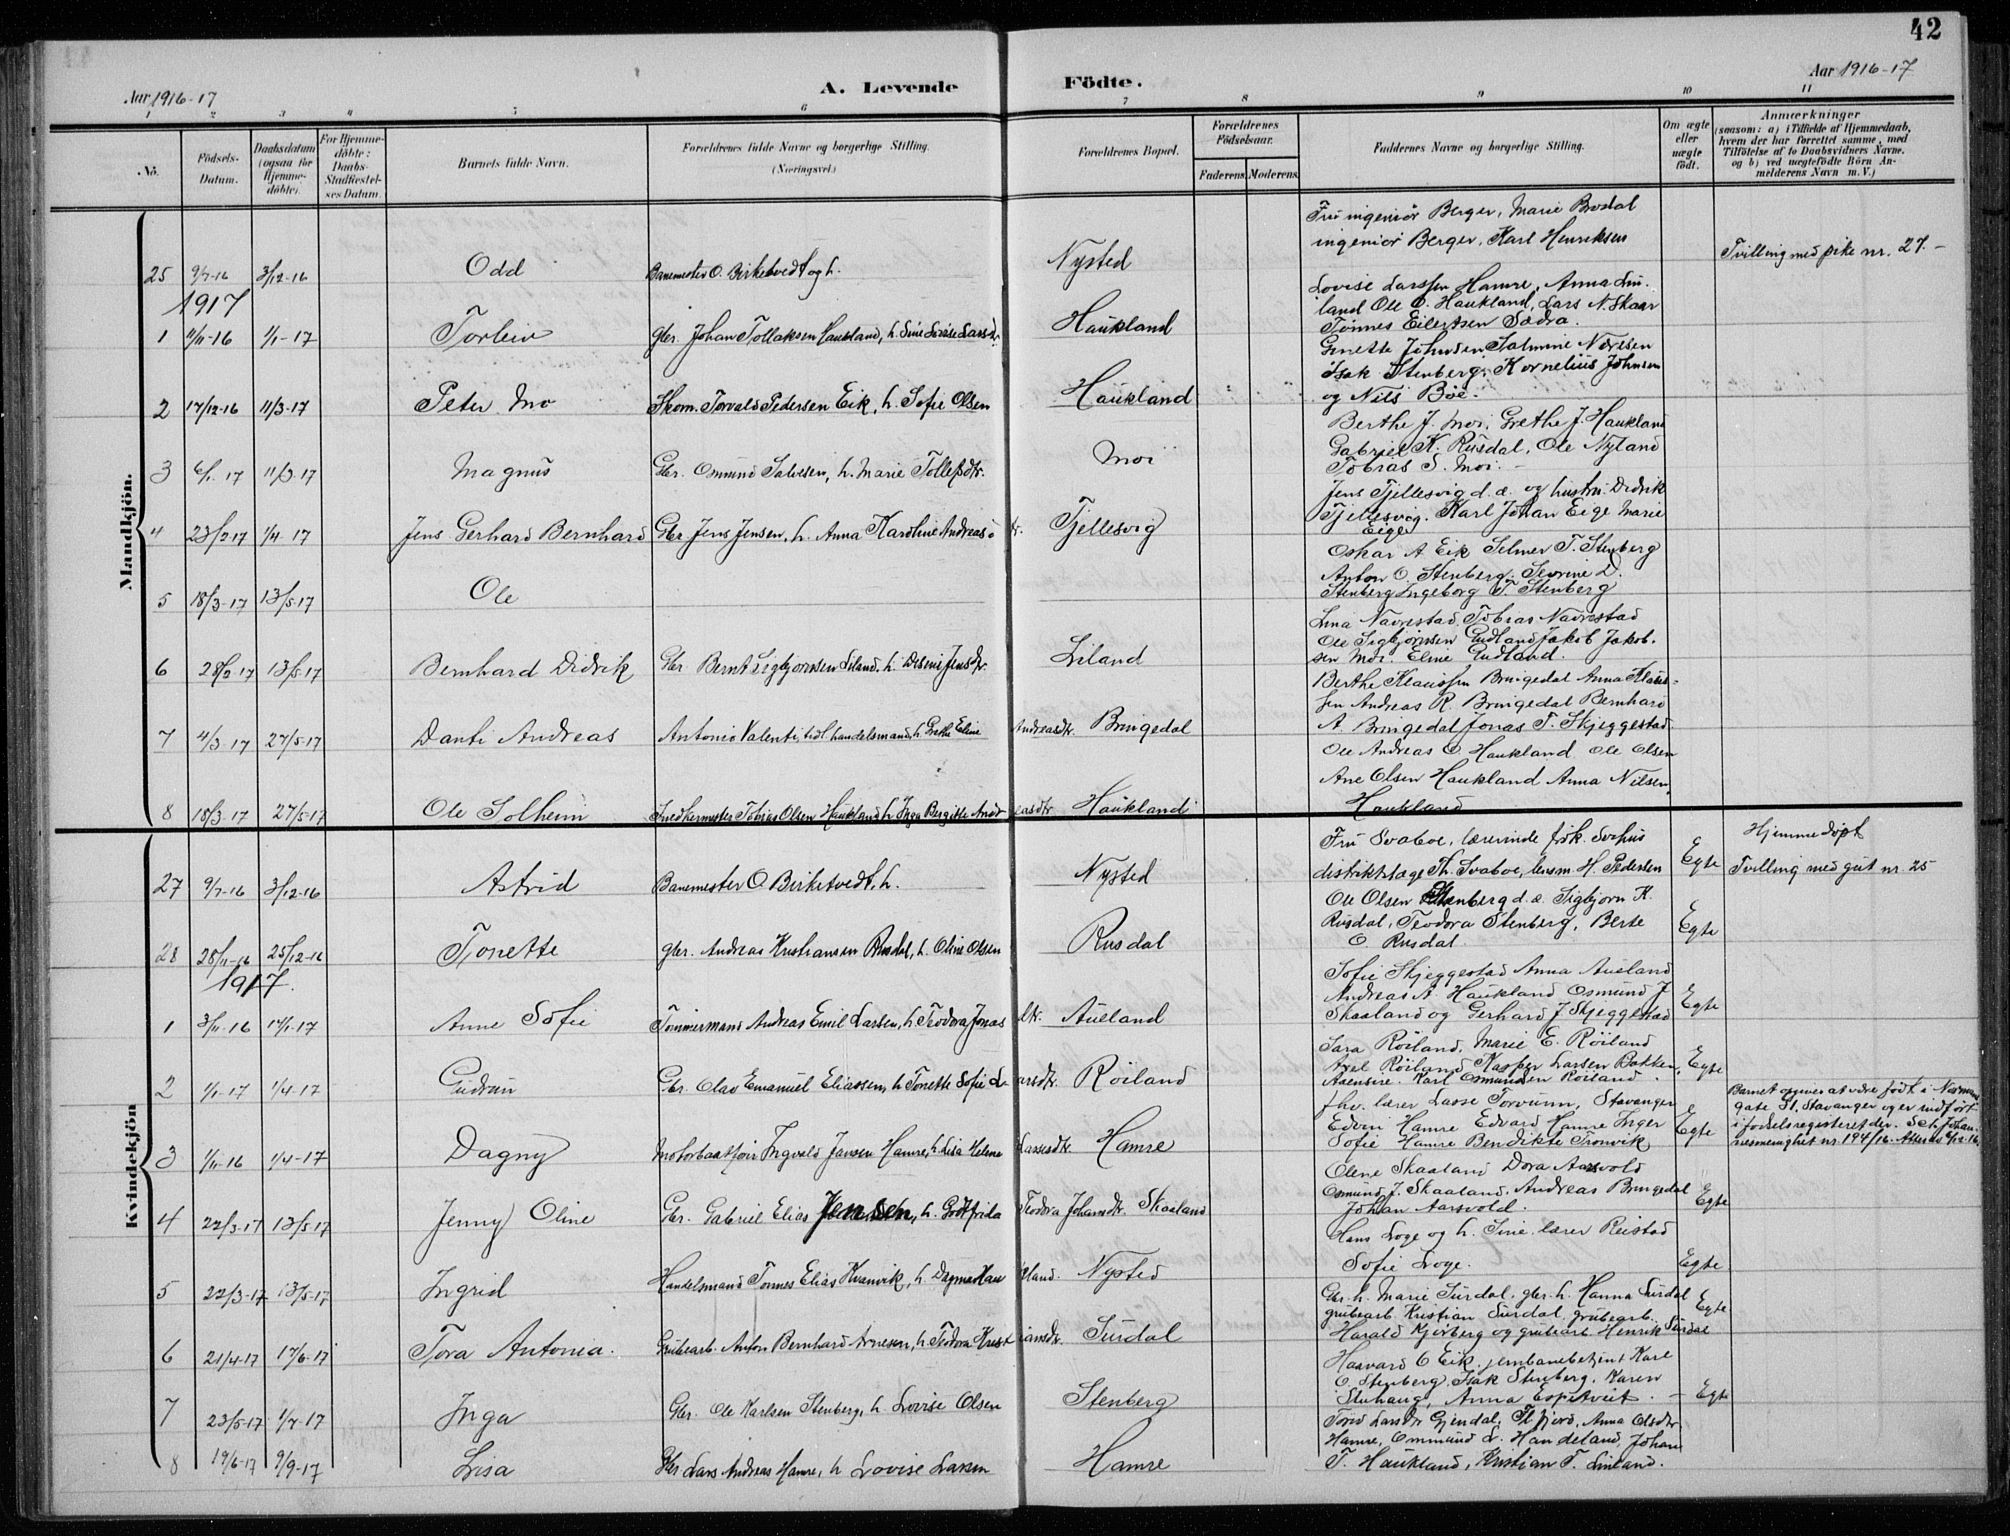 42
Aar 1916-17
A. Levende
Födte.
Aar 1916-17
1 2 3 4 5 6 7 8 9 10 11
No.
Födsels-Datum.
Daabsdatum (ogsaa for Hjemme-döbte).
For Hjemme-döbte: Daabs-Stadfæstel-ses Datum.
Barnets fulde Navn.
Forældrenes fulde Navne og borgerlige Stilling. (Næringsvei.)
Forældrenes Bopæl.
Forældrenes Födselsaar.
Faderens. Moderens.
Faddernes Navne og borgerlige Stilling.
Om ægte eller uægte födt.
Anmærkninger (saasom: a) i Tilfælde af Hjemmedaab, hvem der har forrettet samme, med Tilföielse af to Daabsvidners Navne, og b) ved uægtefödte Börn An-melderens Navn m. V.)
Mandkjön.
Fru ingeniør Berger, Marie Brodal
ingeniør Berger, Karl Henriksen
25 9/7-16 3/12-16 Odd Banemester O. Birketvedt og h. Nysted Tvilling med pike nr. 27.-
1917
Lovise Larssen Hamre, Anna Lin-
land Ole O. Haukland, Lars N. Skaar
1 11/11-16 1/1-17 Torleiv gbr. Johan Tollaksen Haukland, h. Sine Lovise Larsdtr. Haukland Tønnes Eilertsen Sædra.
Gunette Johnsen Salmine Nærsen
Isak Stenberg, Kornelius Johnsen
2 17/12-16 11/3-17 Peter Mo Skom. Torvald Pedersen Eik, h. Sofie Olsen Haukland og Nils Böe.
Berthe J. Moi, Grethe J. Haukland
Gabriel K. Rusdal, Ole Nyland
3 6/1-17 11/3-17 Magnus Gbr. Omund Salvesen, h. Marie Tollefsdtr. Moi Tobias S. Moi.-
Jens Tjellesvig d.æ. og hustru, Didrik
Tjellesvig. Karl Johan Eige Marie
4 23/2-17 1/4-17 Jens Gerhard Bernhard Gbr Jens Jensen, h. Anna Karoline Andreasdtr. Tjellesvig Eige
Oskar A Eik Selmer T. Stenberg
Anton O. Stenberg, Severine D.
5 18/3-17 13/5-17 Ole Stenberg Ingeborg T. Stenberg
Lina Navrestad, Tobias Navrestad
Ole Sigbjørnsen Gudland Jakob Jakob-
6 28/2-17 13/5-17 Bernhard Didrik Gbr. Bernt Sigbjørnsen Liland, h. Desine Jensdtr. Liland sen Moi. Eline Gudland.
Berthe Klaussen Bringedal Anna Klaus-
sen Andreas R. Bringedal Bernhard
7 4/3-17 27/5-17 Danti Andreas Antonio Valenti, tidl. handelsmand, h Grethe Eline Andreasdtr. Bringedal A. Bringedal Jonas T. Skjeggestad
Ole Andreas O. Haukland Ole Olsen
Ane Olsen Haukland Anna Nilsen
8 18/3-17 27/5-17 Ole Solheim Snedkermester Tobias Olsen Haukland h Inga Bergitte Andreasdtr Haukland Haukland
Kvindekjön
Fru Svaboe, lærerinde frk. Svehus Hjemmedøpt
27 9/7-16 3/12-16 Astrid Banemester O. Birketvedt, h. Nysted distriktslæge Th. Svaboe, lensm. H. Pedersen Egte Tvilling med gut nr. 25
Ole Olsen Stenberg d.æ. Sigbjørn K.
Rusdal, Teodora Stenberg, Berte
28 28/11-16 25/12-16 Tonette gbr. Andreas Kristiansen Rusdal, h. Oline Olsen Rusdal O Rusdal. Egte
1917.
Sofie Skjeggestad Anna Aueland
Andreas A Haukland Osmund J
1 3/11-16 14/1-17 Anne Sofie Tømmermand Andreas Emil Larsen, h. Teodora Jonasdtr. Aueland Skaaland og Gerhard J Skjeggestad Egte
Sara Röiland, Marie E. Röiland
Axel Röiland Kasper Larsen Bakken,
2 1/1-17 1/4-17 Gudrun Gbr. Olav Emanuel Eliassen, h. Tonette Sofie Larsdtr. Röiland Aaensire. Karl Osmundsen Röiland. Egte
fhv. lærer Lasse Torvunn, Stavanger
Edvin Hamre Edvard Hamre Inger
3 1/11-16 1/4-17 Dagny Motorbaatfører Ingvald Jansen Hamre, h. Lisa Helene Lassesdtr. Hamre Sofie Hamre Bendikte Tronvik Egte
Barnet opgives at være født i
gate 51, Stavanger og er indført
i fødselsregisteret der. Sct. Johan-
nesmenighet nr. 194/16.
Olene Skaaland Dora Aarsvold
Osmund J. Skaaland, Andreas Bringedal
4 22/3-17 13/5-17 Jenny Oline Gbr. Gabriel Elias Jensen, h. Godtfrida Teodora Johansdtr. Skaaland Johan Aarsvold. Egte
Hans Loge og h. Sine, lærer Reistad
5 22/3-17 13/5-17 Ingrid Handelsmand Tønnes Elias Kvanvik, h. Dagmar Haukland. Nysted Sofie Loge. Egte
Gbr. h. Marie Surdal, gbr. h. Hanna Surdal
grubearb. Kristian Surdal, grubearb.
6 21/4-17 17/6-17 Tora Antonia. Grubearb. Anton Bernhard Arnesen, h. Teodora Kristiansdtr. Surdal Harald Kjørberg og grubearb. Henrik Surdal Egte
Haavard O Eik, jernbanebetjent Karl
O. Stenberg, Isak Stenberg, Karen
7 23/5-17 1/7-17 Inga Gbr. Ole Karlsen Stenberg, h. Lovise Olsen Stenberg Stuhaug, Anna Espetveit. - Egte
Torid Larsdtr Gjendal, Anna Olsdtr
Hamre, Ommund L. Handeland, Johan
8 19/6-17 9/9-17 Lisa Gbr Lars Andreas Hamre, h Lovise Larsen Hamre T. Haukland, Kristian T. Linland.